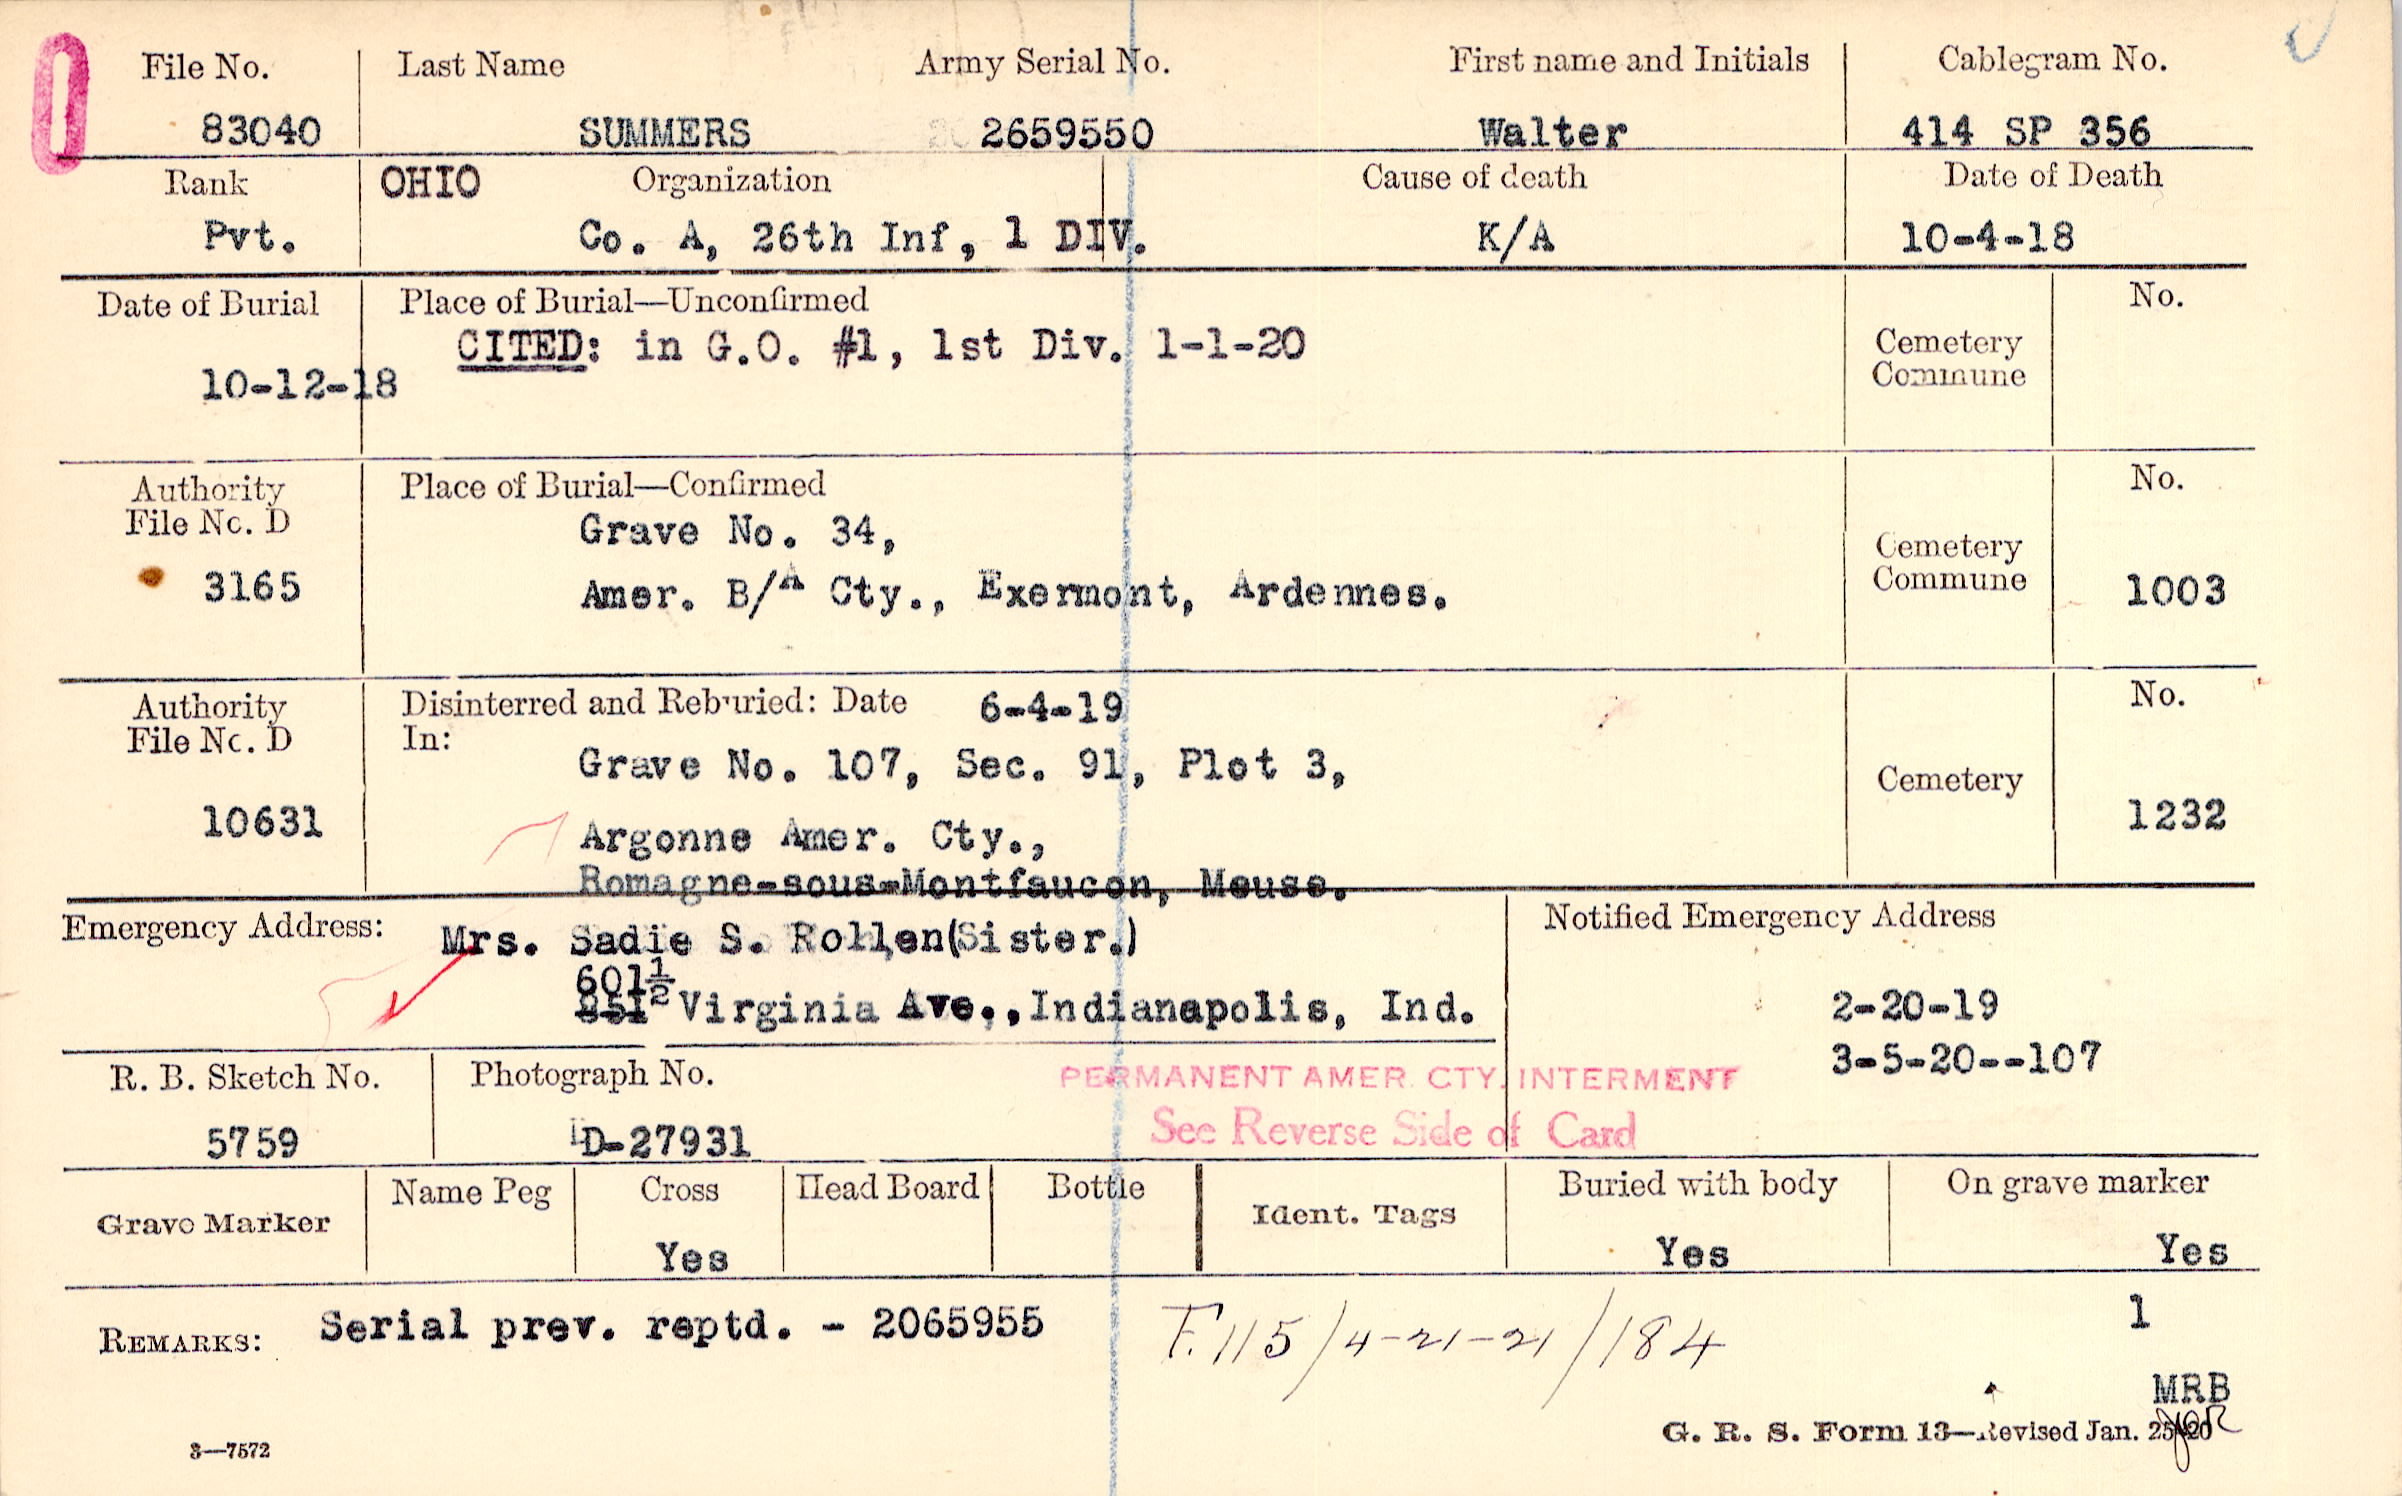 File No. Last Name Army Serial No. First name and Initials Cablegram No.
83040 SUMMERS 2659550 Walter 414 SP 356
Rank OHIO Organization Cause of death Date of Death
Pvt. Co. A, 26th Inf, 1 DIV. K/A 10-4-18
Date of Burial Place of Burial—Unconfirmed No.
CITED: in G.O. #1, 1st Div. 1-1-20
10-12-18
Cemetery
Commune
Authority Place of Burial—Confirmed No.
File No. D
Grave No. 34,
3165 Amer. B/A Cty., Exermont, Ardennes.
Cemetery
Commune 1003
Authority Disinterred and Reburied: Date 6-4-19 No.
File No. D In:
Grave No. 107, Sec. 91, Plot 3,
Cemetery
10631 Argonne Amer. Cty., 1232
Romagne-sous-Montfaucon, Meuse.
Emergency Address: Mrs. Sadie S. Rollen(Sister.) Notified Emergency Address
601½
Virginia Ave., Indianapolis, Ind. 2-20-19
3-5-20--107
R. B. Sketch No. Photograph No. PERMANENT AMER. CTY. INTERMENT
5759 D-27931 See Reverse Side of Card
Grave Marker Name Peg Cross Head Board Bottle Ident. Tags Buried with body On grave marker
Yes Yes Yes
REMARKS: Serial prev. reptd. - 2065955 F.115/4-21-21/184 1
MRB
3—7572 G. R. S. Form 13—Revised Jan. 25-20